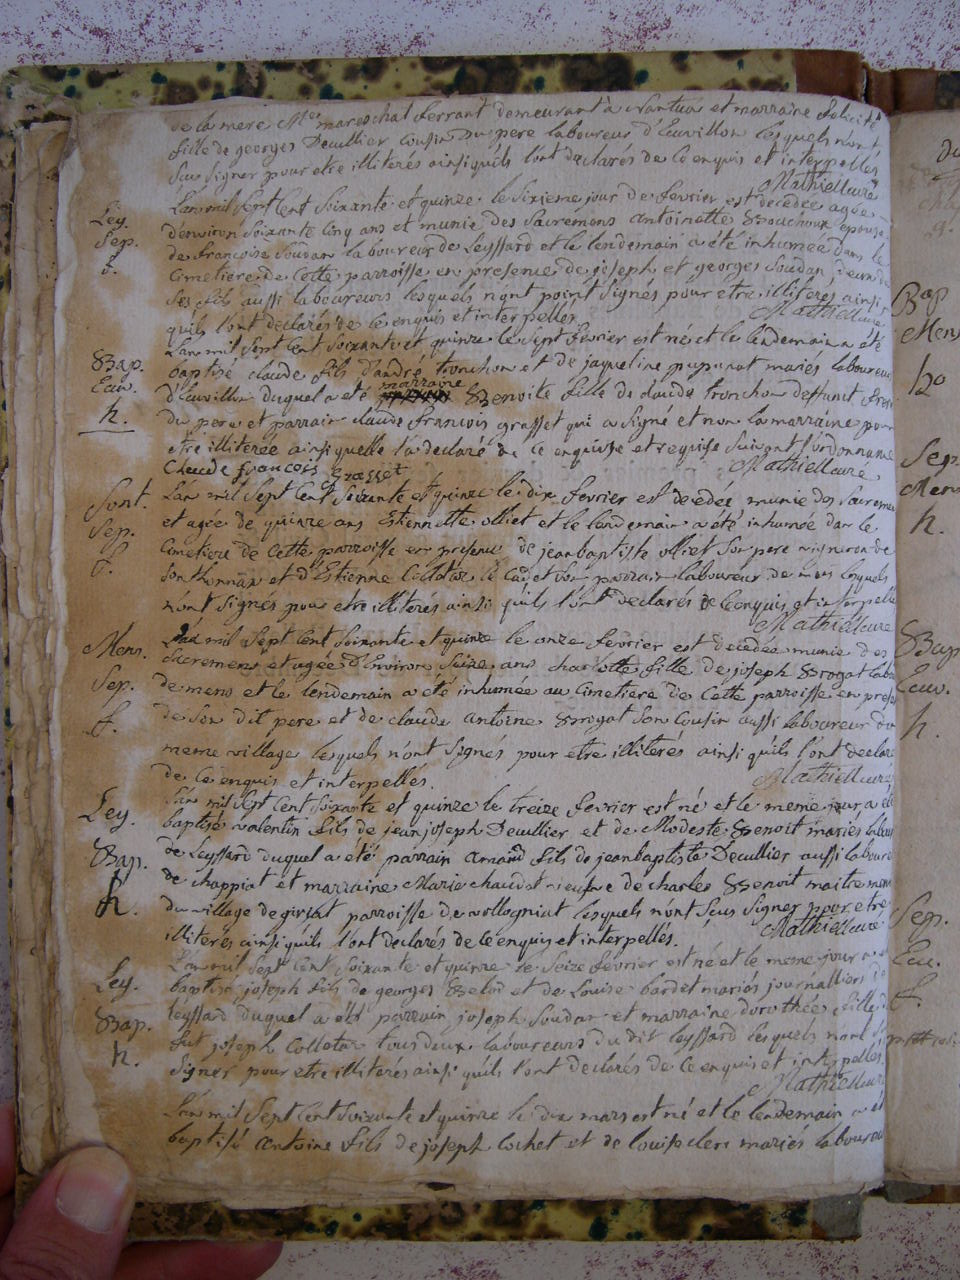 de la mere Me mareschal ferrant demeurant à Nantua et marraine felicité
fille de georges Decullier cousin du pere laboureur d'Euvillon lesquels n'ont
Sçu signer pour etre illiterés ainsi quils l'ont declarés de ce enquis et interpellés
Mathieu curé
Ley.
Sep.
f.
L'an mil sept cent soixante et quinze le sixieme jour de fevrier est decedée agée
d'environ soixante cinq ans et munie des sacremens antoinette Bouchoux epouse
de françois Soudan laboureur de Leyssard et le lendemain a été inhumée dans le
cimetiere de cette parroisse en presence de joseph et georges Soudan deux de
ses fils aussi laboureurs lesquels n'ont point signés pour etre illiterés ainsi
Mathieu curé
quils l'ont declarés de ce enquis et interpellés
Bap.
Euv.
h.
L'an mil sept cent soixante et quinze le sept fevrier est né et le lendemain a été
baptisé claude fils d'andré tronchon et de jaqueline pupunat mariés laboureurs
d'Euvillon duquel a été marraine Benoite fille de claude tronchon deffunt frere
du pere et parrain claude françois grasset qui a signé et non la marraine pour
etre illiterée ainsi quelle l'a declaré de ce enquise et requise suivant l'ordonnance
Claude françois Grasset Mathieu curé
Sont.
Sep.
f.
L'an mil sept cent soixante et quinze le dix fevrier est decedée munie des sacremens
et agée de quinze ans Etiennette olliet et le lendemain a été inhumée dans le
cimetiere de cette parroisse en presence de jeanbaptiste olliet son pere vigneron de
Sonthonnax et d'Estienne le cadet son parrain laboureur de mens lesquels
n'ont signés pour etre illiterés ainsi quils l'ont declarés de ce enquis et interpellés
Mathieu curé
Mens.
Sep.
f.
L'an mil sept cent soixante et quinze le onze fevrier est decedée munie des
sacremens et agée d'Environ seize ans charlotte fille de joseph Brogat
de mens et le lendemain a été inhumée au cimetiere de cette parroisse en
de son dit pere et de claude antoine Brogat son cousin aussi laboureur du
meme village lesquels n'ont signés pour etre illiterés ainsi quils l'ont declaré
de ce enquis et interpellés. Mathieu curé
Ley.
Bap.
h.
L'an mil sept cent soixante et quinze le treize fevrier est né et le meme jour a été
baptisé valentin fils de jean joseph Decullier et de Modeste Benoit mariés
de Leyssard duquel a été parrain amand fils de jeanbaptiste Decullier aussi
de chappiat et marraine Marie chaudet vieufve de charles Benoit maitre
du village de giriat parroisse de vollognat lesquels n'ont sçus signer pour etre
illiterés ainsi quils l'ont declarés de ce enquis et interpellés. Mathieu curé
Ley.
Bap.
h.
L'an mil sept cent soixante et quinze le seize fevrier est né et le meme jour a
baptisé joseph fils de georges et de Louise bardet mariés journalliers de
leyssard duquel a été parrain joseph Soudan et marraine dorothée fille
fut joseph tous deux laboureurs du dit leyssard lesquels n'ont
signer pour etre illiterés ainsi quils l'ont declarés de ce enquis et interpellés
Mathieu curé
L'an mil sept cent soixante et quinze le dix mars est né et le lendemain a été
baptisé antoine fils de joseph cochet et de mariés laboureurs
Bap
Mens
h
Sep.
Mens
h.
Bap
Euv.
h.
Sep.
Eu.
f.